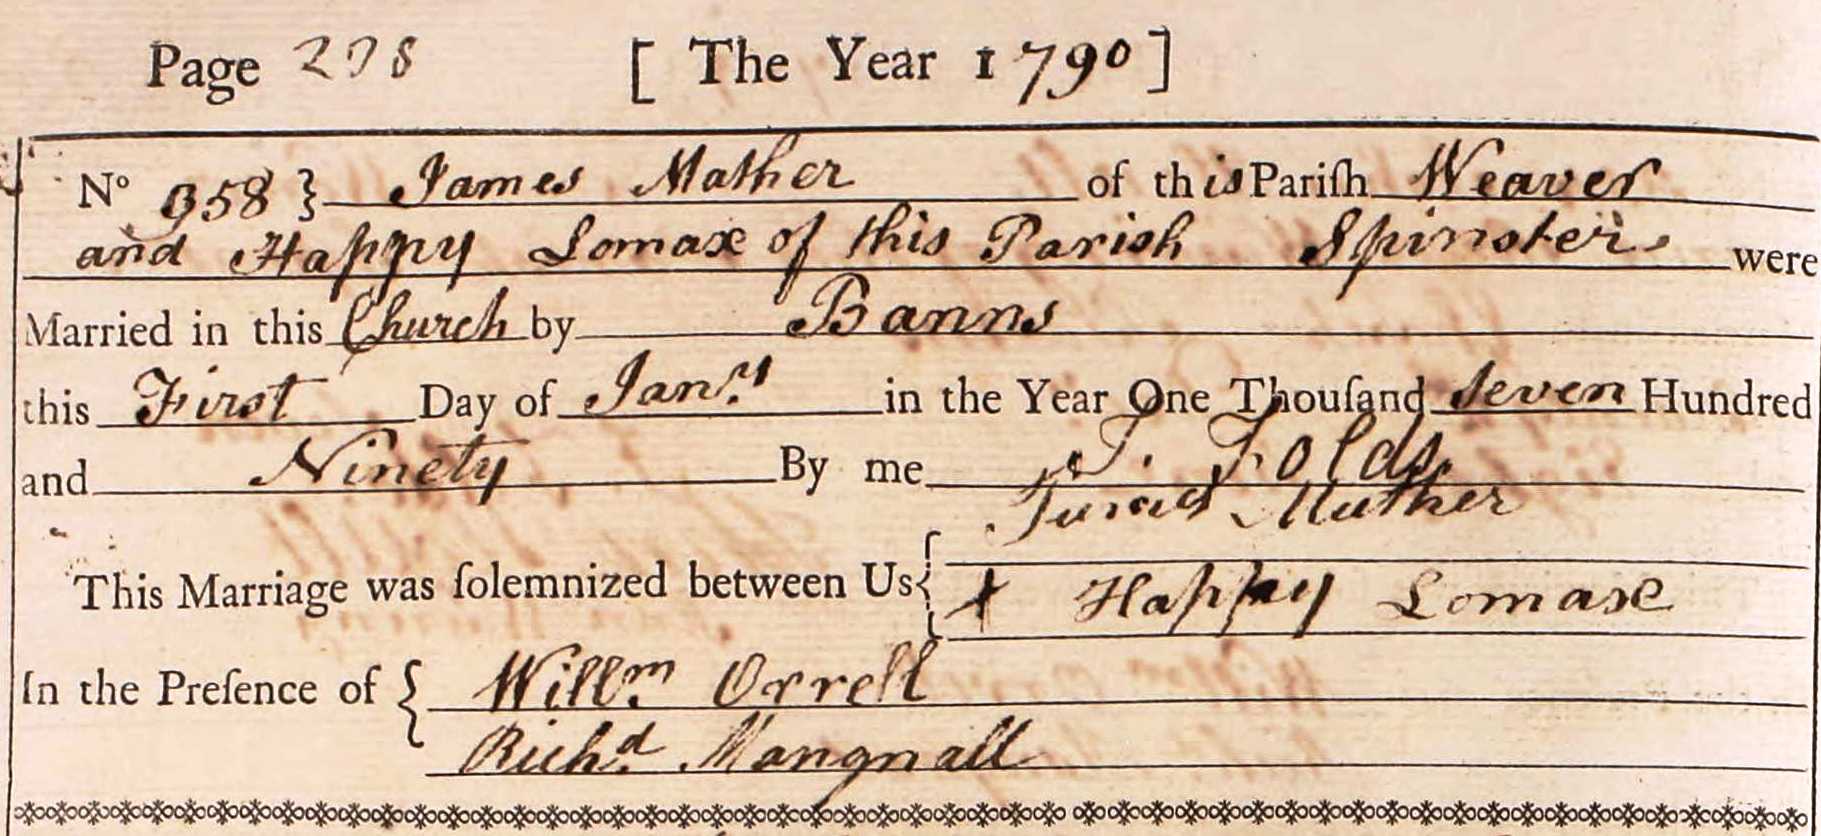 Page 298 [ The Year 1790 ]
No 958 } James Mather of this Pariſh Weaver
and Happy Lomax of this Parish Spinster were
Married in this Church by Banns
this First Day of Janry. in the Year One Thouſand Seven Hundred
and Ninety By me J. Folds
James Mather
This Marriage was ſolemnized between Us {
X Happy Lomax
In the Preſence of { Willm. Orrell
Richd. Mangnall